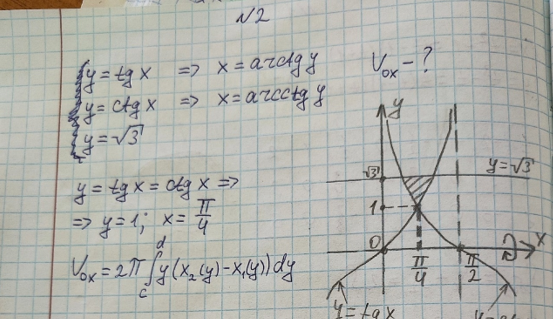 №2
y = tg x => x = arctg y
y = ctg x => x = arcctg y
y = √3
V_ox - ?
y = tg x = ctg x =>
=> y = 1; x = π/4
V_ox = 2π ∫_c^d y(x₂(y) - x₁(y)) dy
y
√3
y = √3
1
0
π/4
π/2
x
y = tg x